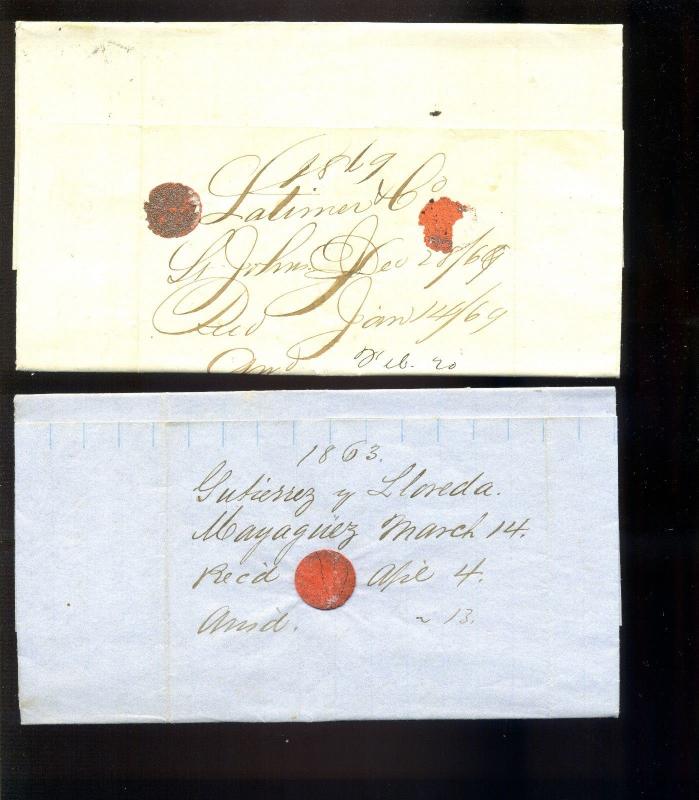 1869
Latimer & Co
St. Johns Dec 28/68
Recd Jan 14/69
Ansd Feb. 20
1863.
Gutierrez y Lloreda.
Mayagüez March 14.
Rec'd Apl 4.
Ansd. ~ 13.